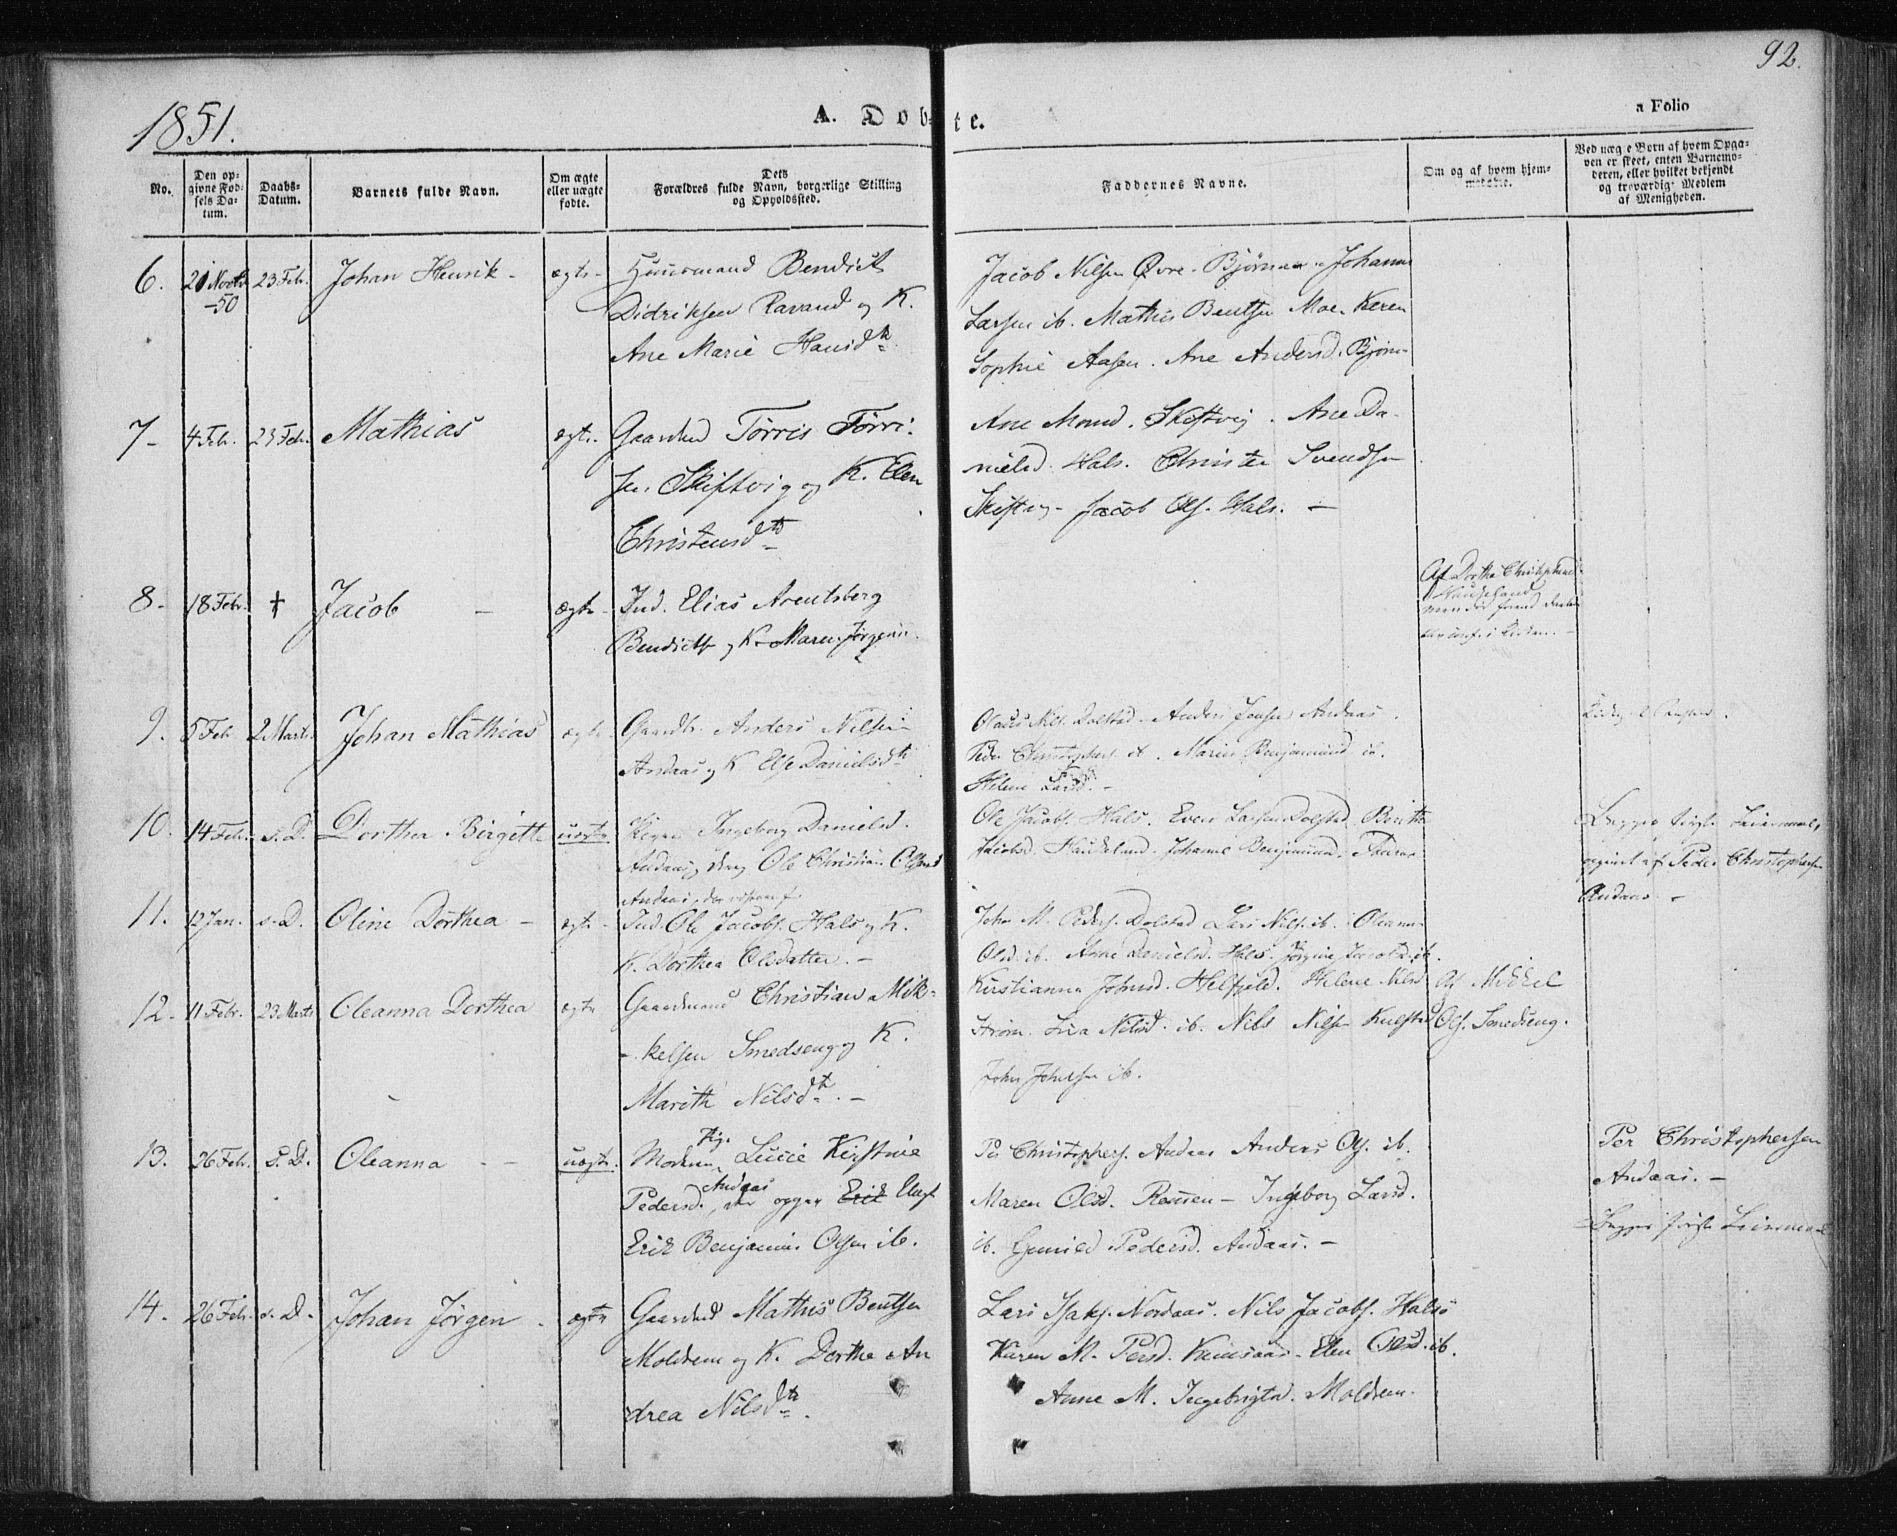 92.
1851.
A. Døbte.
a Folio
No.
Den opgivne Fødsels Datum.
Daabs-Datum.
Barnets fulde Navn.
Om ægte eller uægte fødte.
Dets Forældres fulde Navn, borgerlige Stilling og Opholdssted.
Faddernes Navne.
Om og af hvem hjemmedøbt.
Ved uægte Børn af hvem Opgaven er skeet, enten Barnemoderen, eller hvilket bekjendt og troværdigt Medlem af Menigheden.
6. 21 Novbr -50 23 Febr. Johan Henrik - ægte -
Huusmand Bendict
Didriksen Ravand og K.
Ane Marie Hansdtr
Jacob Nilsen Øvre-Bjørnaa. Johanna
Larsen ib. Mathis Bentsen Moe. Karen
Sophie Aasen. Ane Andersd. Bjørn-
7- 4 Feb. 23 Feb. Mathias ægte.
Gaardmd Tørris Tørri-
sen Skiftvig og K. Elen
Christensdtr
Ane Monsd. Skiftvig. Ane Da-
nielsd. Hals. Christen Svendsen
Skiftvig - Jacob Ols. Hals. -
8- 18 Febr. † Jacob - ægte -
Ind. Elias Arentsberg
Bendicts. og K. Maren Jørgens.
Af Dorthe Christophersd.
Haudeland
9. 5 Feb. 2 Marts Johan Mathias ægte
Gaardbr. Anders Nilsen
Andaas og K Else Danielsdtr
Olaus Nils. Dolstad. Anders Jensen Andaas.
Peder Christophers. ib. Maria Benjaminsd. ib.
Helene Larsd. -
10. 14 Feb. s. D. Dorthea Birgitte uægte
Pigen Ingeborg Danielsd
Andaas, Ole Christian Olsen
Andaas,
Ole Jacobs. Hals. Even Larsen Dolstad. Beritte
Jacobsd. Haudeland. Johanna Benjaminsd.
Begges første Leiermaal,
opgivet af Peder Christophersen
Andaas -
11. 12 Jan. s. D. Oline Dorthea - ægte -
Ind. Ole Jacobs. Hals og K.
K. Dorthea Olsdatter. -
John M. Peders. Dolstad Lars Nils. ib. Oleanna
Olsd. ib. Anne Danielsd. Hals. Jørgine Jacobsd. ib.
12. 11 Febr. 23 Marts Oleanna Dorthea ægte
Gaardmand Christian Mik-
kelsen Smedseng og K.
Marith Nilsdtr. -
Kirstianna Johnsd. Helfjeld. Helene Nilsd
Strøm. Lisa Nilsd. ib. Nils Nilsen Kulstad
John Johnsen ib.
Af Mikkel
Ols. Smedseng.
13. 26 Feb. s. D. Oleanna - - uægte.
Moderen Pige Lucie Kirstine
Pedersd. Andaas, der opgav Erik Ungk.
Erik Benjamin Olsen ib.
Per Christophers. Andaas Anders Ols. ib.
Maren Olsd. Remen - Ingeborg Larsd.
ib. Gunild Pedersd. Andaas. -
Per Christophersen
Andaas. -
Begges første Leiermaal
14. 26 Feb. s. D. Johan Jørgen - ægte
Gaardmd Mathis Bentsen
Moldrem og K. Dorthe An
drea Nilsdtr.
Lars Isaks. Nordaas. Nils Jacobs. Halsø
Karen M. Persd. Elen Olsd. ib.
Anne M. Ingebrigtsd. Moldrem.